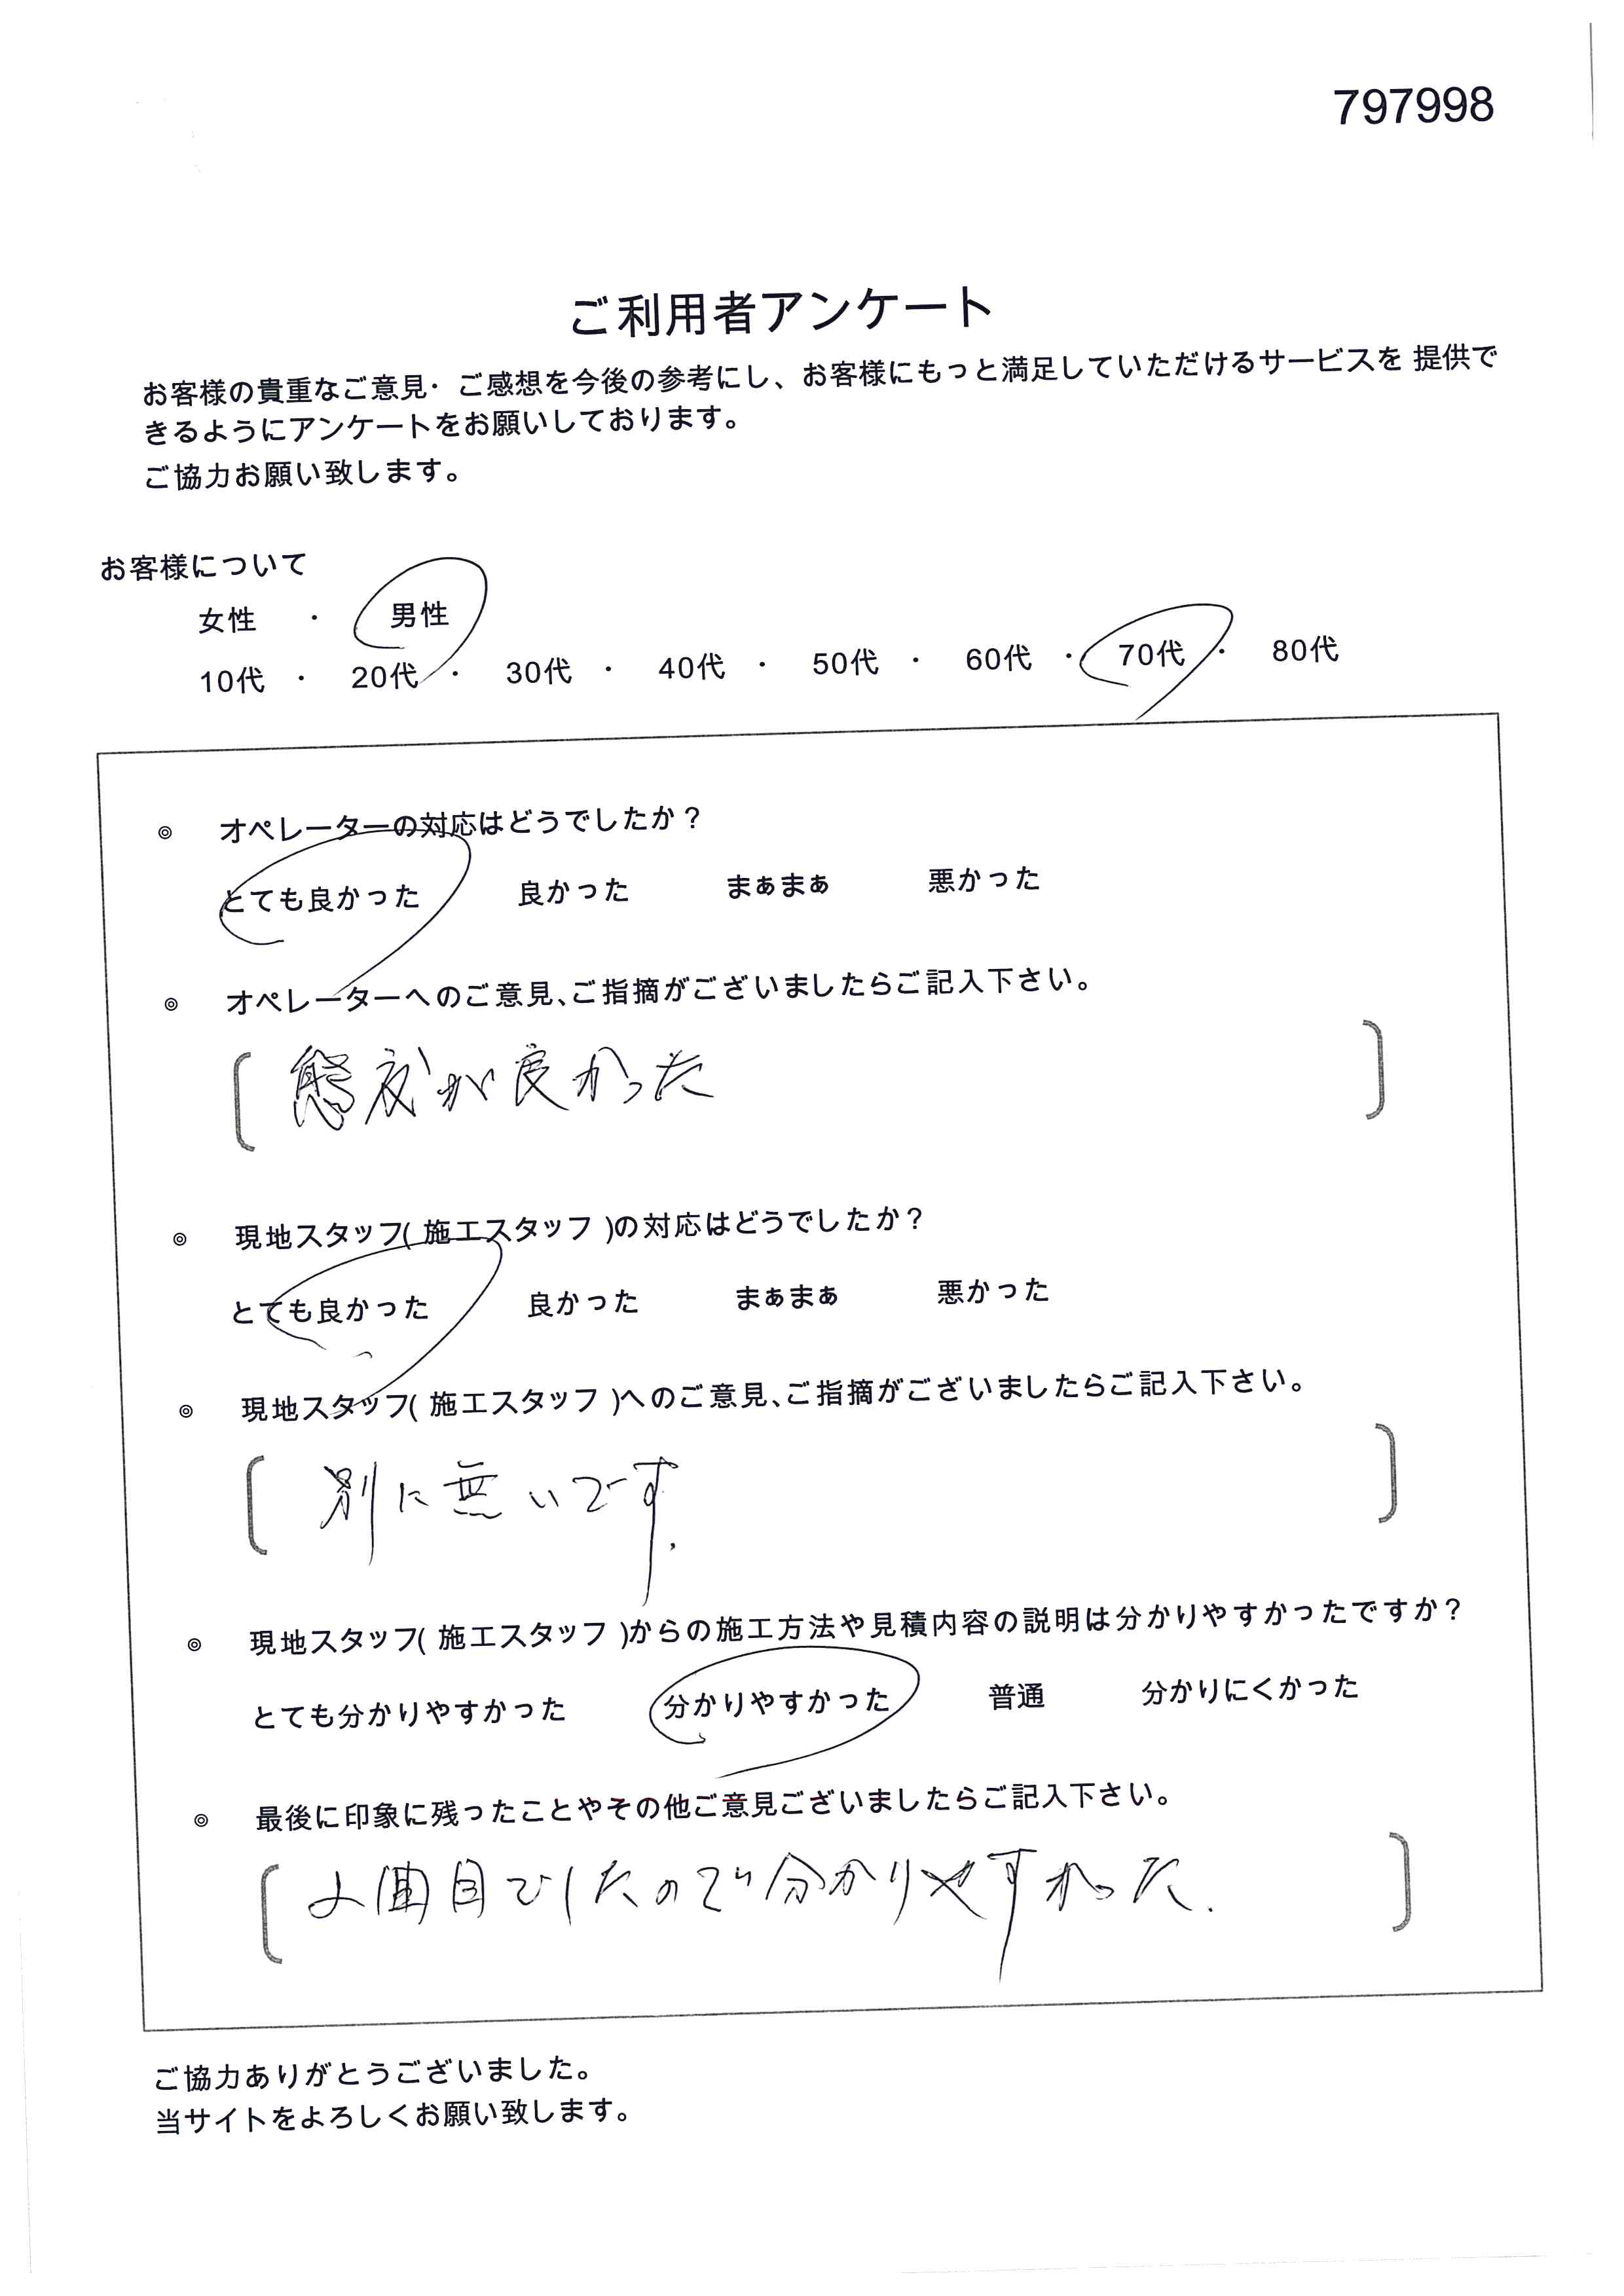 797998
ご利用者アンケート
お客様の貴重なご意見・ご感想を今後の参考にし、お客様にもっと満足していただけるサービスを 提供で
きるようにアンケートをお願いしております。
ご協力お願い致します。
お客様について
女性 ・ 男性
10代 ・ 20代 ・ 30代 ・ 40代 ・ 50代 ・ 60代 ・ 70代 ・ 80代
◎ オペレーターの対応はどうでしたか？
とても良かった 良かった まぁまぁ 悪かった
◎ オペレーターへのご意見、ご指摘がございましたらご記入下さい。
態度が良かった
◎ 現地スタッフ( 施工スタッフ )の対応はどうでしたか？
とても良かった 良かった まぁまぁ 悪かった
◎ 現地スタッフ( 施工スタッフ )へのご意見、ご指摘がございましたらご記入下さい。
別に無いです.
◎ 現地スタッフ( 施工スタッフ )からの施工方法や見積内容の説明は分かりやすかったですか？
とても分かりやすかった 分かりやすかった 普通 分かりにくかった
◎ 最後に印象に残ったことやその他ご意見ございましたらご記入下さい。
2回目でしたので分かりやすかった.
ご協力ありがとうございました。
当サイトをよろしくお願い致します。